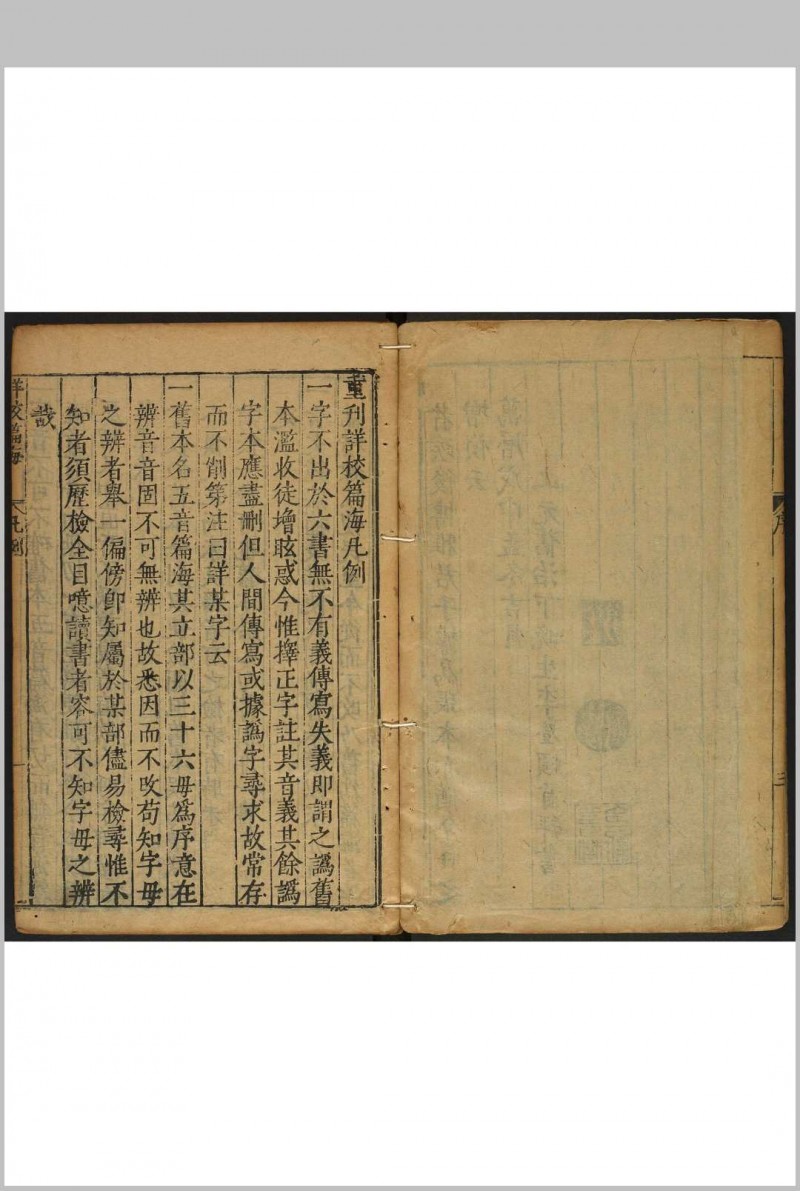 重刊詳校篇海凡例
一字不出於六書無不有義傳寫失義即謂之譌舊
本濫收徒增眩惑今惟擇正字註其音義其餘譌
字本應盡刪但人間傳寫或據譌字尋求故常存
而不削第注曰詳某字云
一舊本名五音篇海其立部以三十六母爲序意在
辨音音固不可無辨也故悉因而不改苟知字母
之辨者舉一偏傍卽知屬於某部儘易檢尋惟不
知者須歷檢全目噫讀書者容可不知字母之辨
哉
詳校篇海
凡例
一
序
三